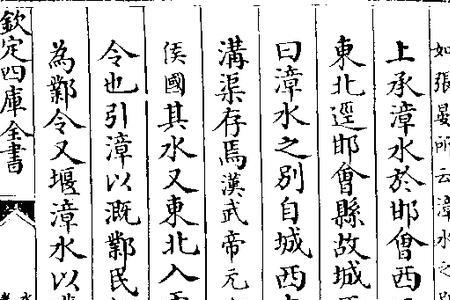 如張晏所云漳水之別
上承漳水於邯會西
東北逕邯會縣故城西
曰漳水之别自城西
溝渠存焉漢武帝元
侯國其水又東北入
令也引漳以溉鄴民
為鄴令又堰漳水以
欽定四庫全書